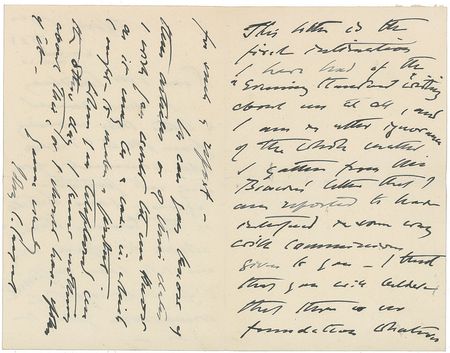 This letter is the
first intimation
I have had of the
"Evening Standard" writing
about us at all, and
I am in utter ignorance
of the whole matter
I gather from this
letter that I
am reported to have
interfered in some way
with commissions
given to you - I trust
that you will believe
that there is no
foundation whatever
for such a report -
As you know of
these articles & of their dates
I wish you would let me know
as it may be a case in which
I ought to make a protest
When I telephoned
the other day I knew nothing
about this, or I should have spoken
of it -
Yours